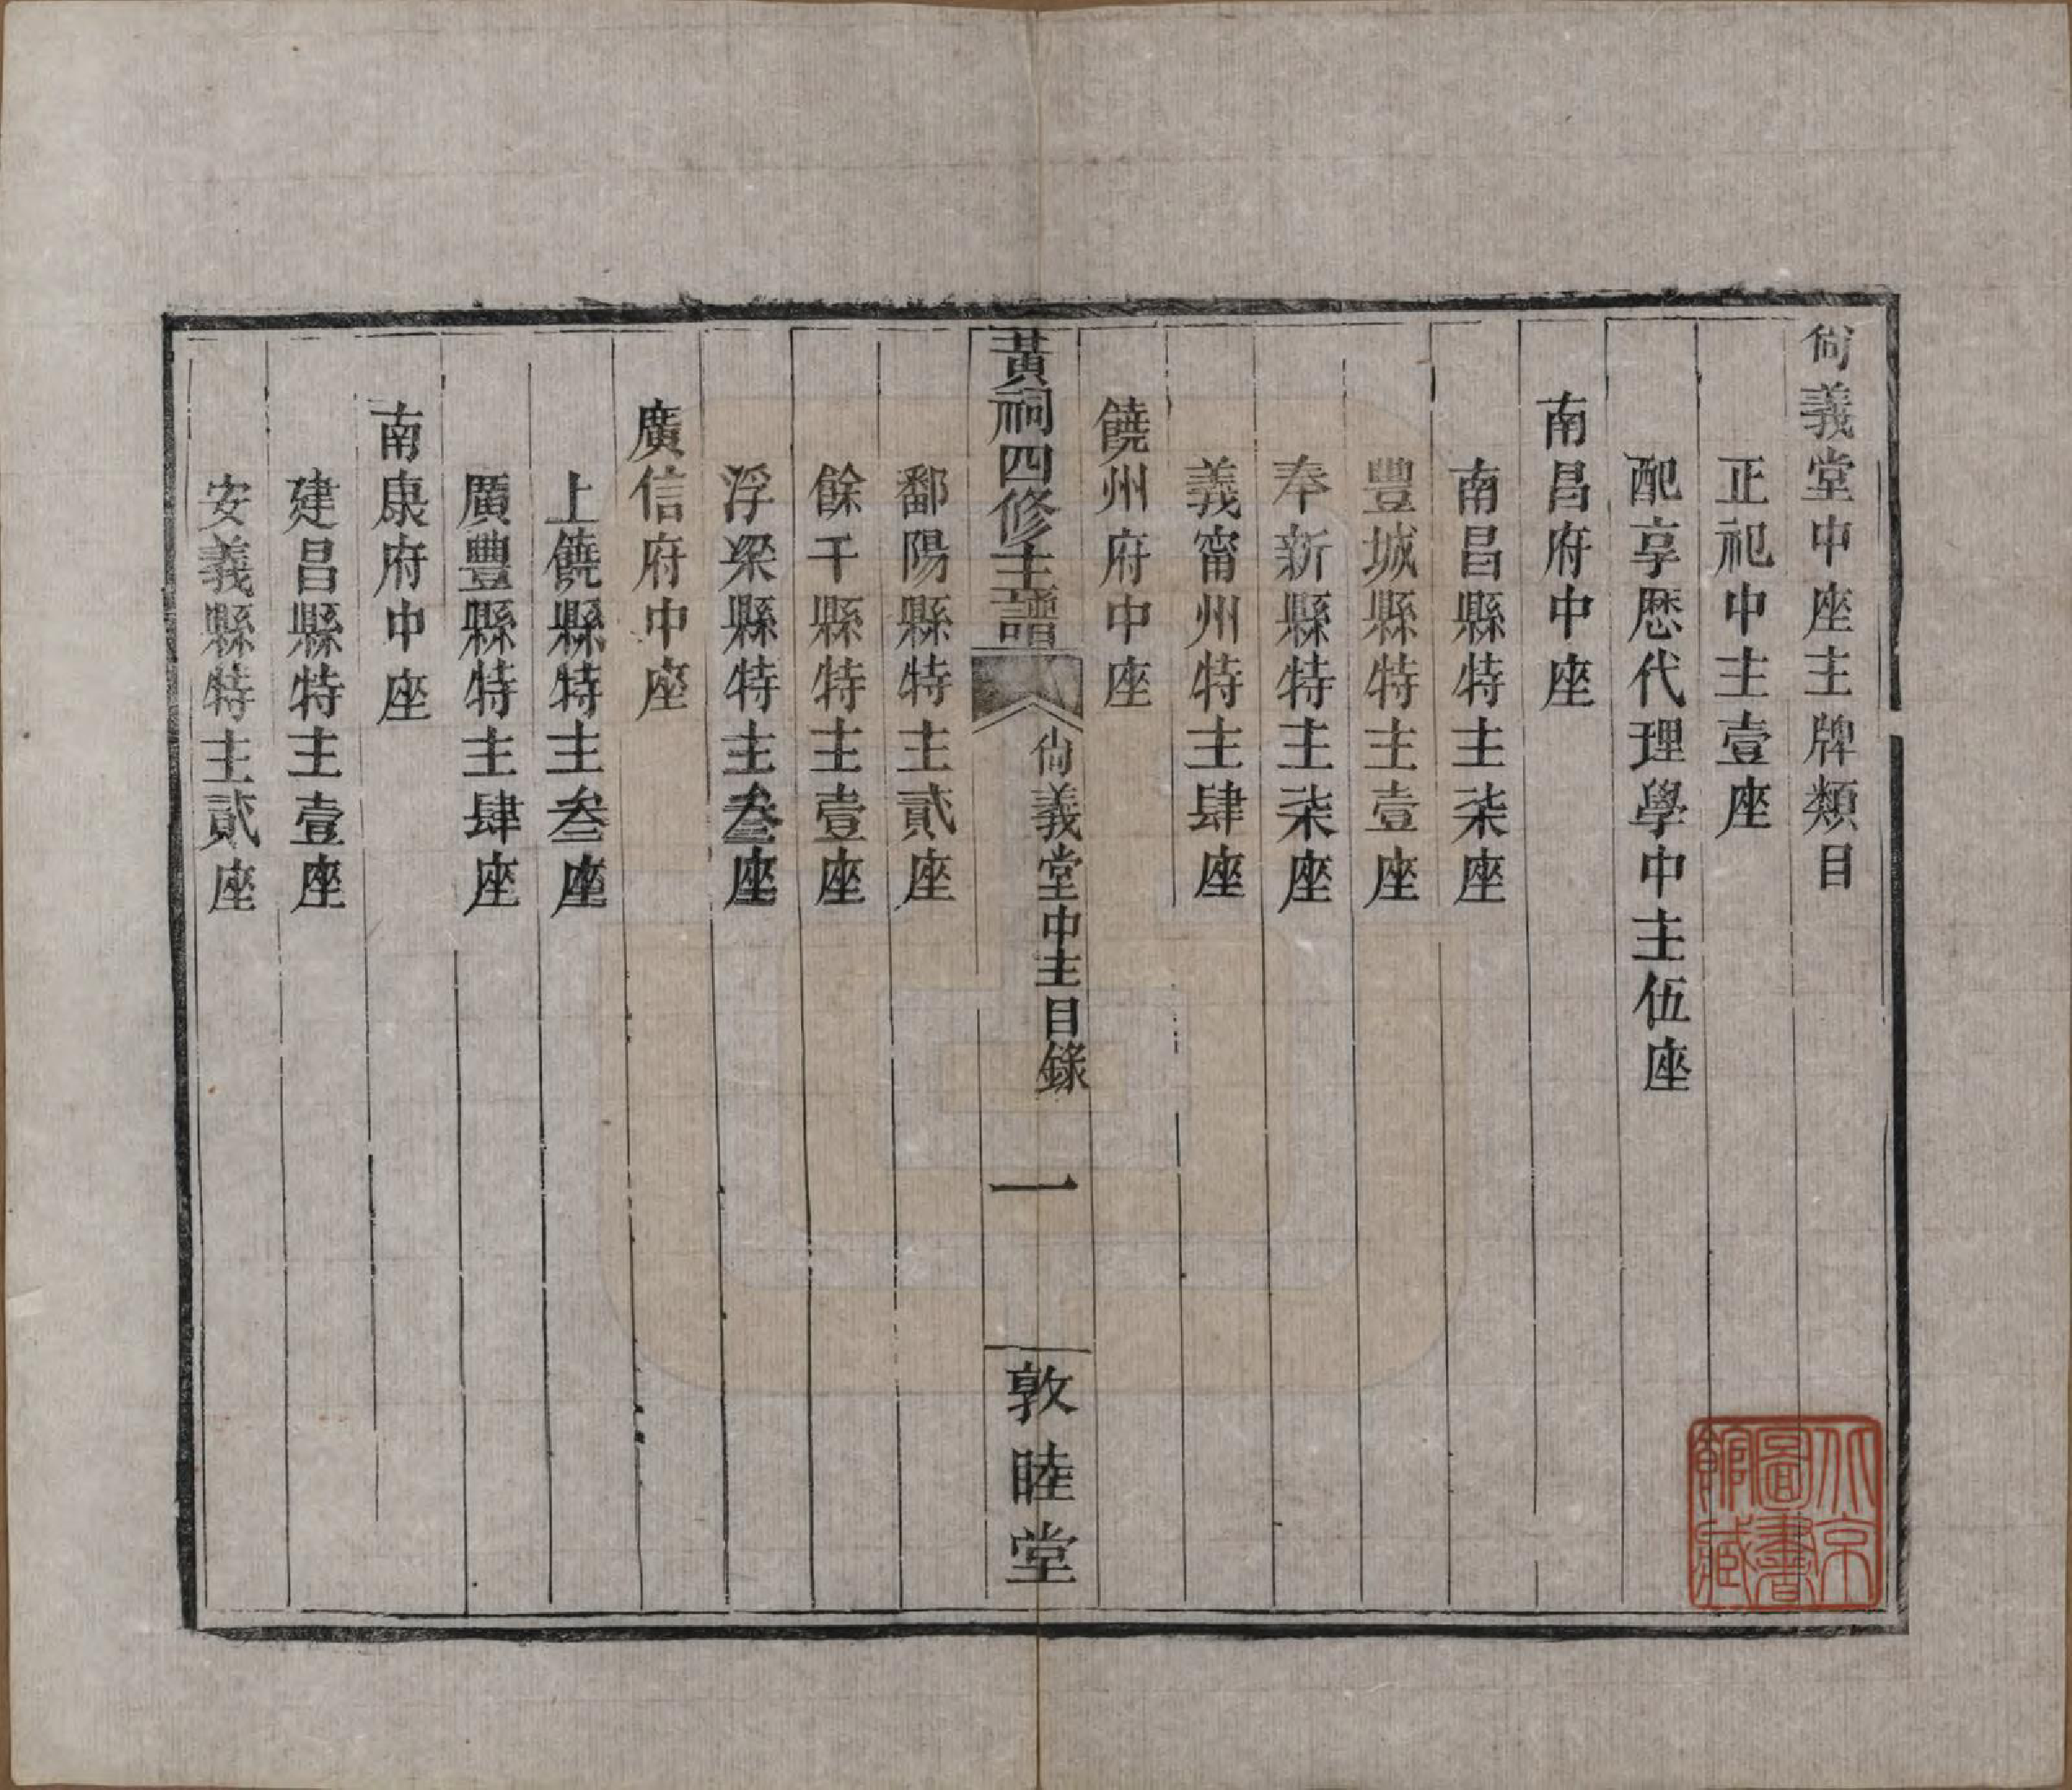 尙義堂中座主牌類目
正祀中主壹座
配享歷代理學中主伍座
南昌府中座
南昌縣特主柒座
豐城縣特主壹座
奉新縣特主柒座
義甯州特主肆座
饒州府中座
黃祠四修主譜
尙義堂中主目錄
一
敦睦堂
鄱陽縣特主貳座
餘干縣特主壹座
浮梁縣特主叁座
廣信府中座
上饒縣特主叁座
廣豐縣特主肆座
南康府中座
建昌縣特主壹座
安義縣特主貳座
北京圖書館藏